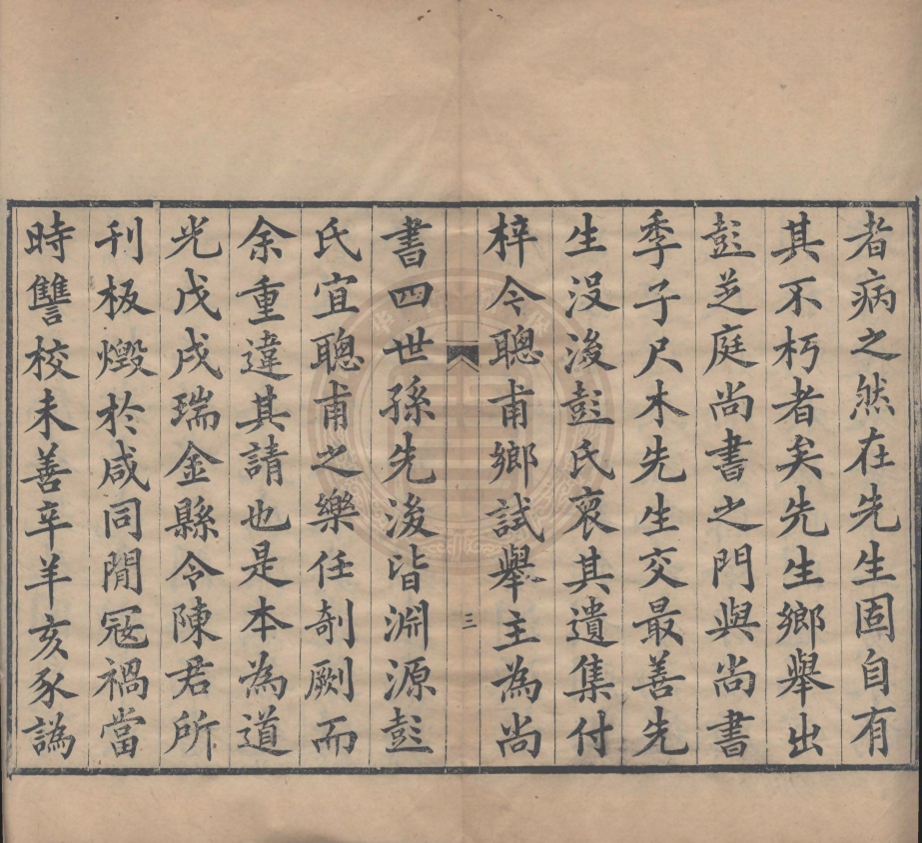 者病之然在先生固自有
其不朽者矣先生鄉舉出
彭芝庭尚書之門與尚書
季子尺木先生交最善先
生没後彭氏裒其遺集付
梓今聰甫鄉試舉主為尚
三
書四世孫先後皆淵源彭
氏宜聰甫之樂任剞劂而
余重違其請也是本為道
光戊戌瑞金縣令陳君所
刊板燬於咸同閒冦禍當
時讐校未善卒羊亥豕譌